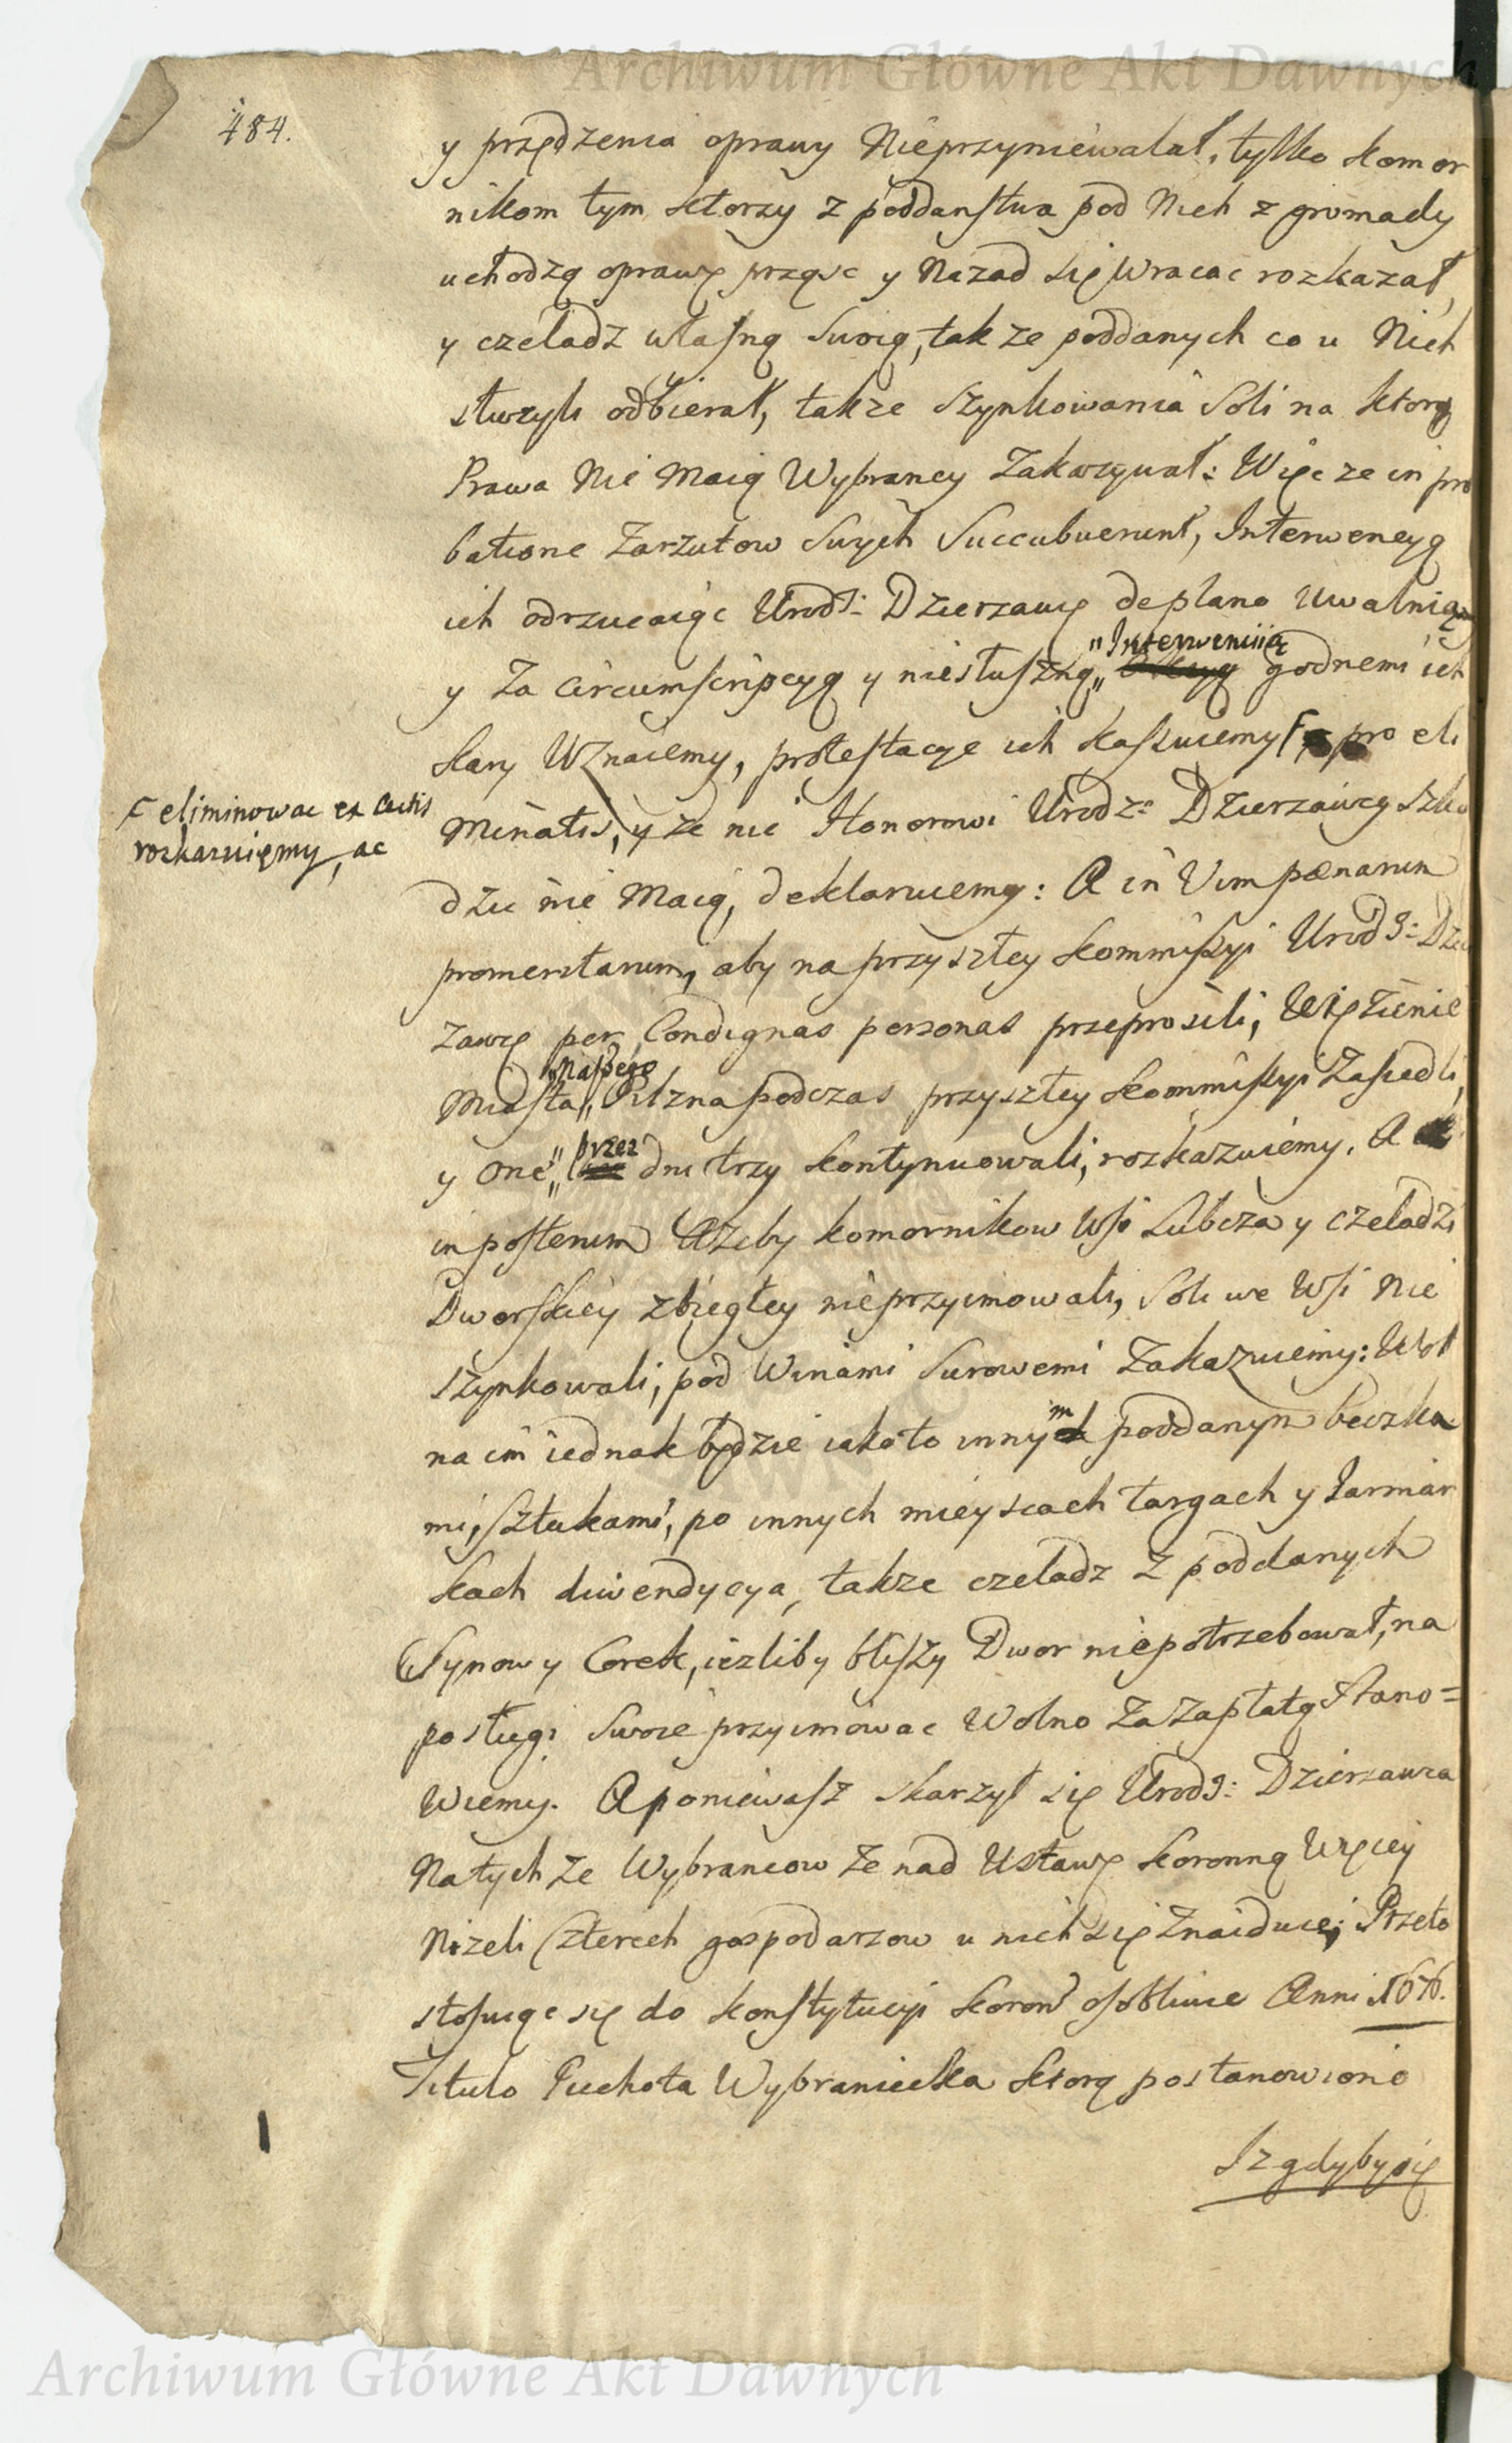 Archiwum Główne Akt Dawnych
484.
y przędzenia oprawy Nieprzyniewalał, tylko komor
nikom tym ktorzy z poddanstwa pod Nich z gromady
uchodzą oprawę prząsc y Nazad się wracac rozkazał,
y czeladz własną swoią, tak ze poddanych co u Nich
słuzyli odbierał, takze szynkowania Soli na ktorą
Prawa Nie Maią Wybrancy Zakazywał: Więc ze in pro
batione Zarzutow swych Succubuerunt, Interwencyą
ich odrzucaiąc Urodz: Dzierzawcę deplano Uwalniamy
"Interweniią
y Za Circumscripcyą y niesłuszną" godnemi ich
kary Uznaiemy, protestacye ich kassuiemy pro eli
F eliminowac ex actis
rozkazuięmy, ac
minatis, y ze nic Honorowi Urodz: Dzierzawcy szko
dzic nie Maią, deklaruiemy: A in Vim pænarum
promeritarum, aby na przyszłey kommissyi Urodz: Dzier
zawcę per Condignas personas przeprosili, Więzienie
"Naszego
Miasta" Pilzna podczas przyszłey kommissyi Zasiedli,
przez
y one" dni trzy kontynuowali, rozkazuiemy. A
in posterum Azeby komornikow Wsi Lubcza y czeladzi
Dworskiey zbiegłey nieprzyimowali, Soli we Wsi Nie
szynkowali, pod Winami Surowemi Zakazuiemy: Wol
na im iednak będzie iako to innym poddanym beczka
mi, sztukami, po innych mieyscach targach y Jarmar
kach diwendycya, takze czeladz z poddanych
Synow y Corek, iezliby bliszy Dwor niepotrzebował, na
posługi swoie przyimowac Wolno Za Zapłatą Stano=
wiemy. A poniewasz skarzył się Urodz: Dzierzawca
Na tych ze Wybrancow ze nad Ustawę koronną Więcey
Nizeli Czterech gospodarzow u nich się Znaiduie; Przeto
stosuiąc się do konstytucyi koron osobliwie Anni 1676.
Titulo Piechota Wybraniecka ktorą postanowiono
Iz gdyby się
Archiwum Główne Akt Dawnych